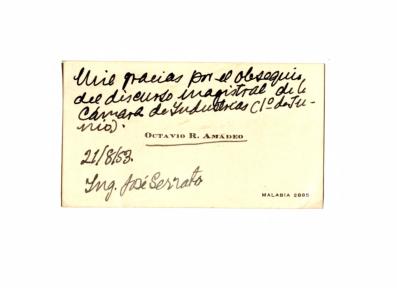 Mil gracias por el obsequio
del discurso magistral de la
Cámara de Industrias (1º de Ju-
nio).
OCTAVIO R. AMADEO
21/8/53.
Ing. José Serrato
MALABIA 2885